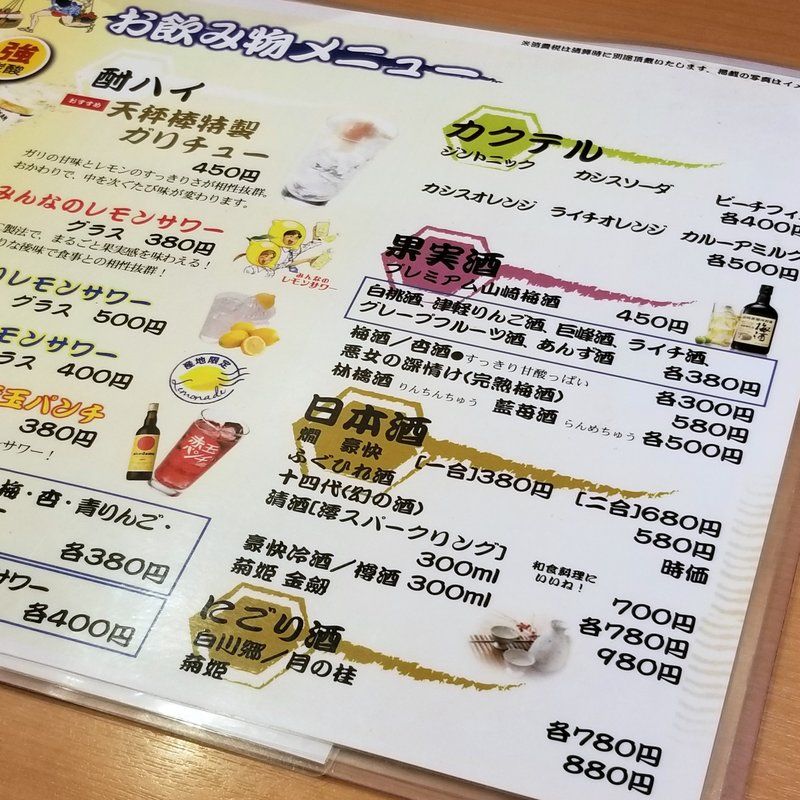 お飲み物メニュー
※消費税は精算時に別途頂戴いたします。掲載の写真はイメ
強
炭酸
酎ハイ
おすすめ
天秤棒特製
ガリチュー
450円
ガリの甘味とレモンのすっきりさが相性抜群。
おかわりで、中を次ぐたび味が変わります。
みんなのレモンサワー
グラス 380円
製法で、まるごと果実感を味わえる！
りな後味で食事との相性抜群！
みんなの
レモンサワー
のレモンサワー
グラス 500円
モンサワー
グラス 400円
産地限定
Lemonade
玉パンチ
380円
ーサワー！
赤玉
パンチ
梅・杏・青りんご・
ー
各380円
サワー
各400円
カクテル
ジントニック カシスソーダ ピーチフィズ
各400円
カシスオレンジ ライチオレンジ カルーアミルク
各500円
果実酒
プレミアム山崎梅酒 450円
白桃酒、津軽りんご酒、巨峰酒、ライチ酒、
グレープフルーツ酒、あんず酒 各380円
梅酒／杏酒●すっきり甘酸っぱい 各300円
悪女の深情け(完熟梅酒) 580円
林檎酒 りんちんちゅう 藍苺酒 らんめちゅう 各500円
梅酒
日本酒
燗 豪快 [一合]380円 [二合]680円
ふぐひれ酒 580円
十四代(幻の酒) 時価
清酒[澪スパークリング] 300ml 和食料理にいいね！ 700円
豪快冷酒／樽酒 300ml 各780円
菊姫 金劔 980円
にごり酒
白川郷／月の桂 各780円
菊姫 880円